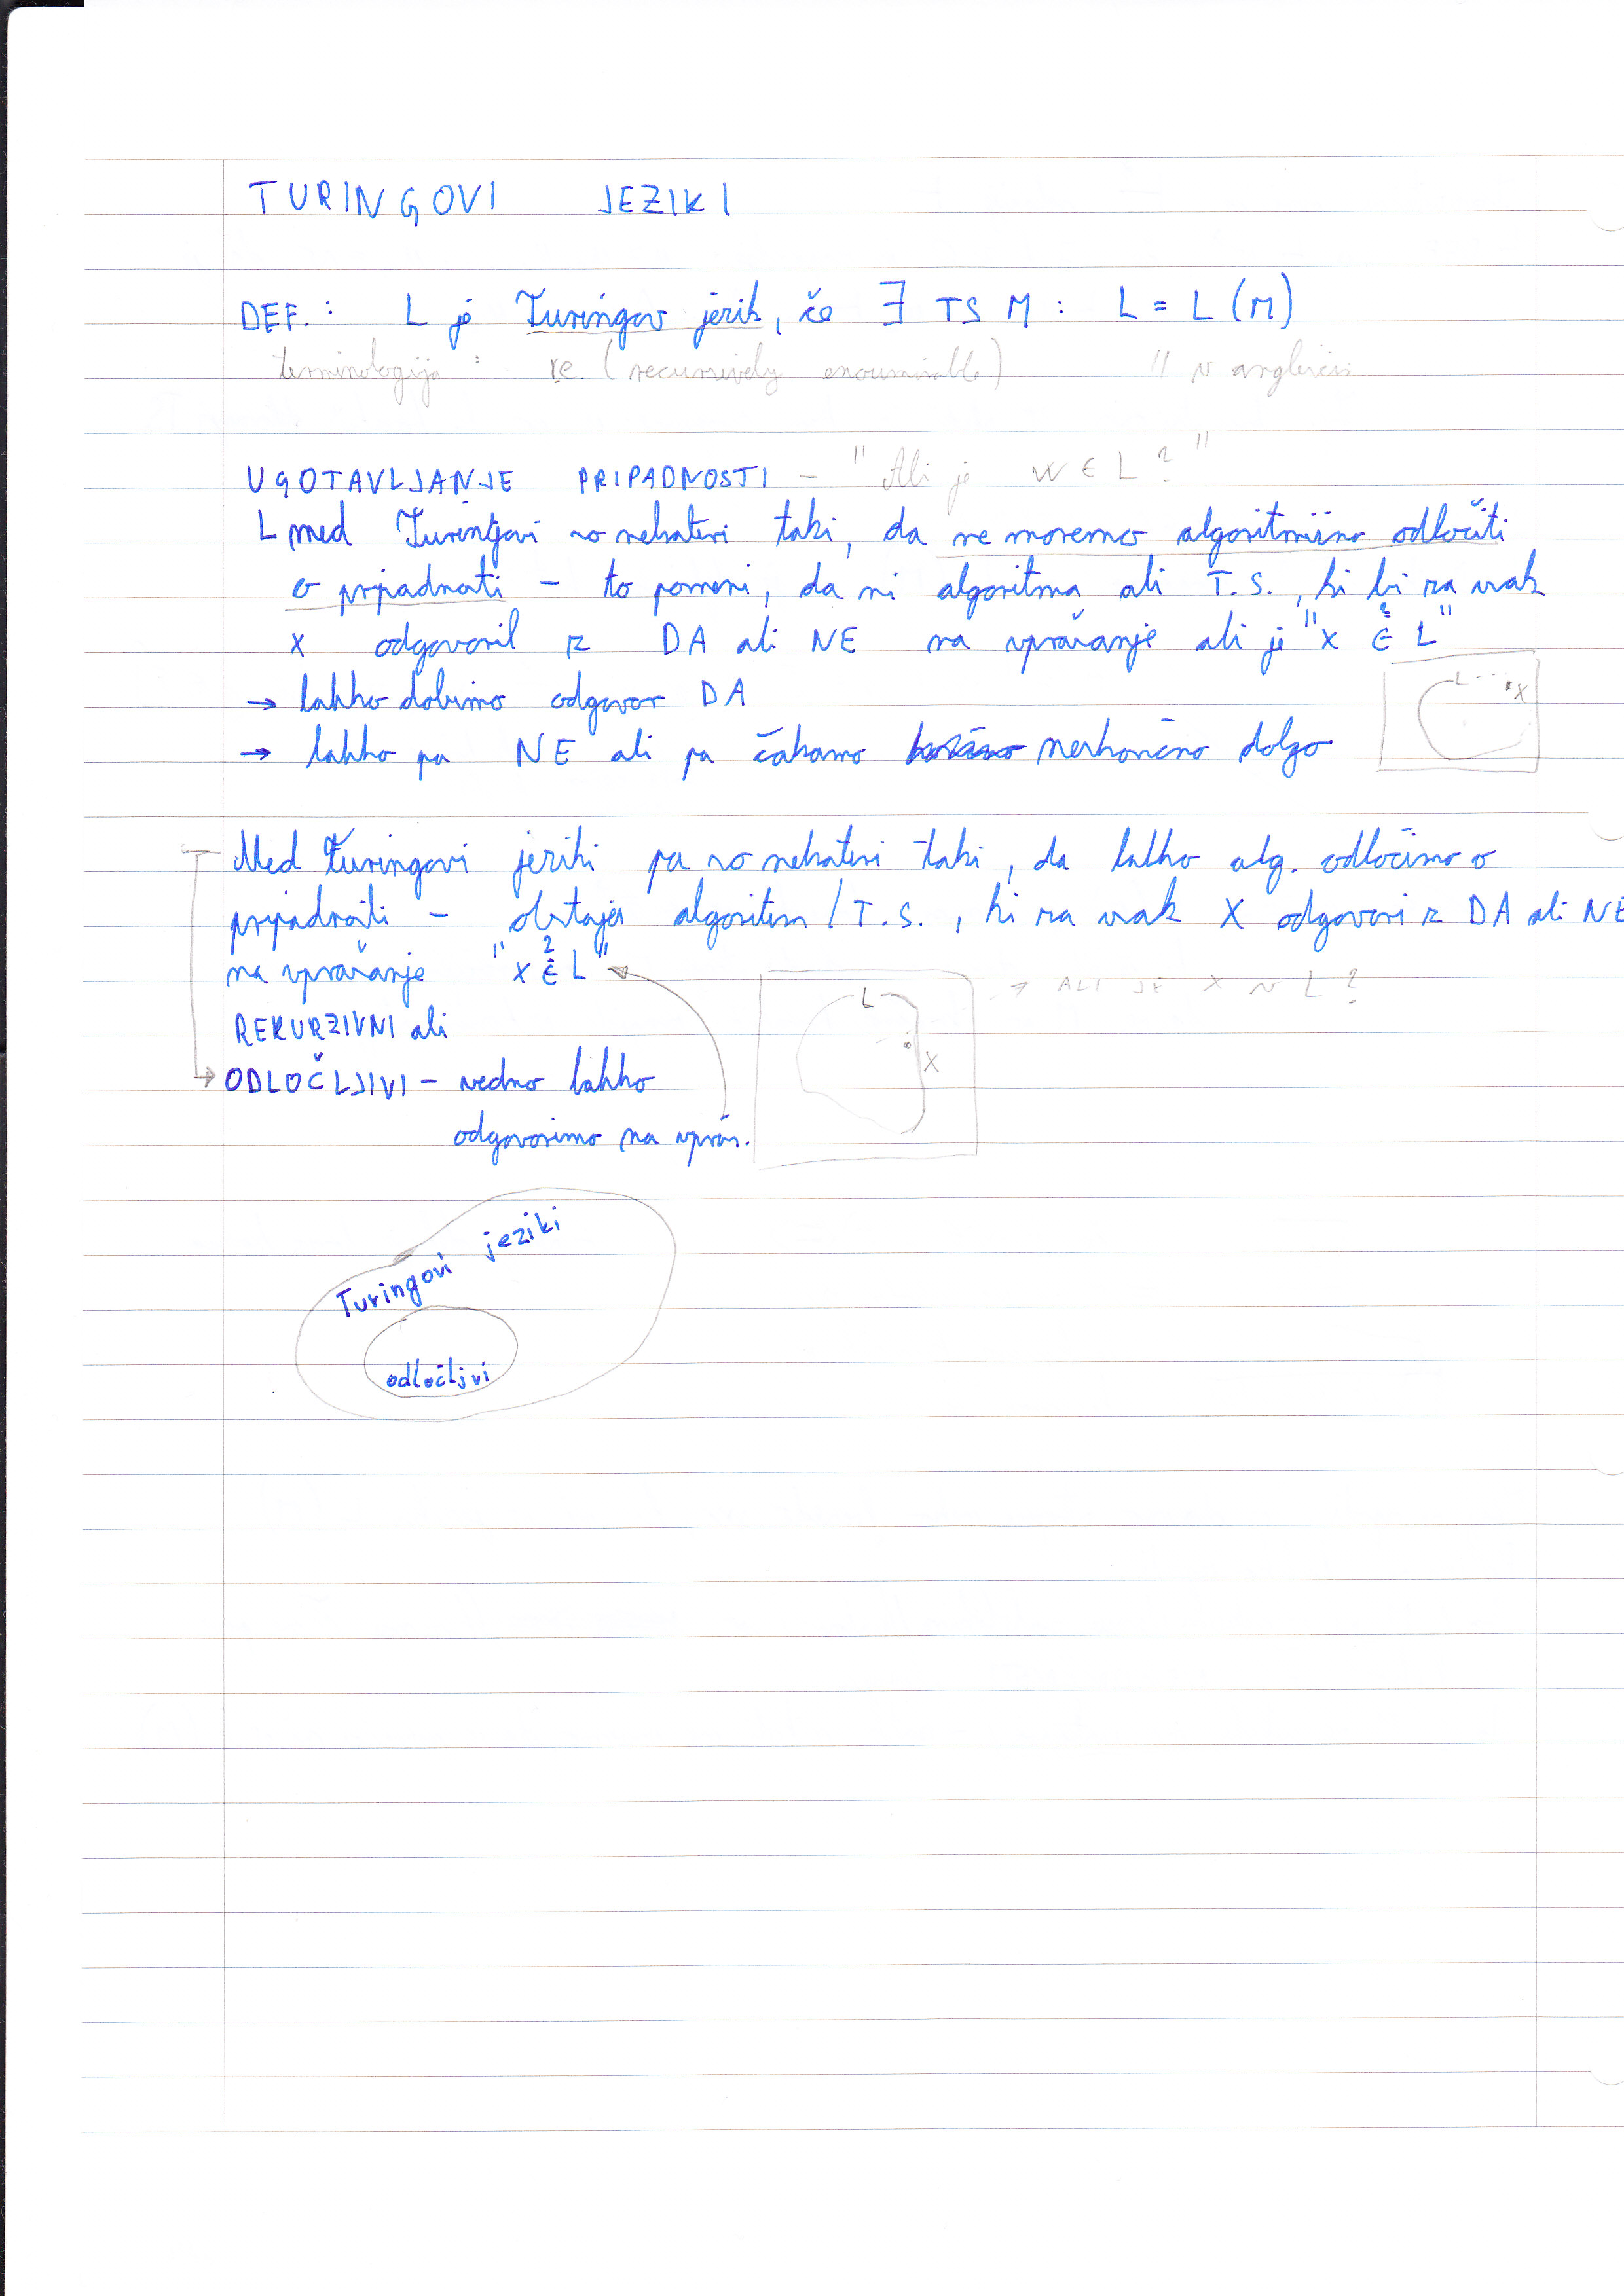 TURINGOVI JEZIKI
DEF.: L je Turingov jezik, če ∃ TS M : L = L(M)
terminologija : re. (recursively enoumirable) // v angleščin
UGOTAVLJANJE PRIPADNOSTI - "Ali je w ∈ L ?"
L med Turingovi so nekateri taki, da ne moremo algoritmično odločiti
o pripadnosti - to pomeni, da ni algoritma ali T.S., ki bi za vsak
x odgovoril z DA ali NE na vprašanje ali je "x ∈? L"
→ lahko dobimo odgovor DA
→ lahko pa NE ali pa čakamo neskončno dolgo
L x
Med Turingovi jeziki pa so nekateri taki, da lahko alg. odločimo o
pripadnosti - obstaja algoritem / T.S., ki za vsak X odgovori z DA ali NE
na vprašanje "x ∈? L"
→ ALI JE X v L ?
L
x
REKURZIVNI ali
→ ODLOČLJIVI - vedno lahko
odgovorimo na vpraš.
Turingovi jeziki
odločljvi